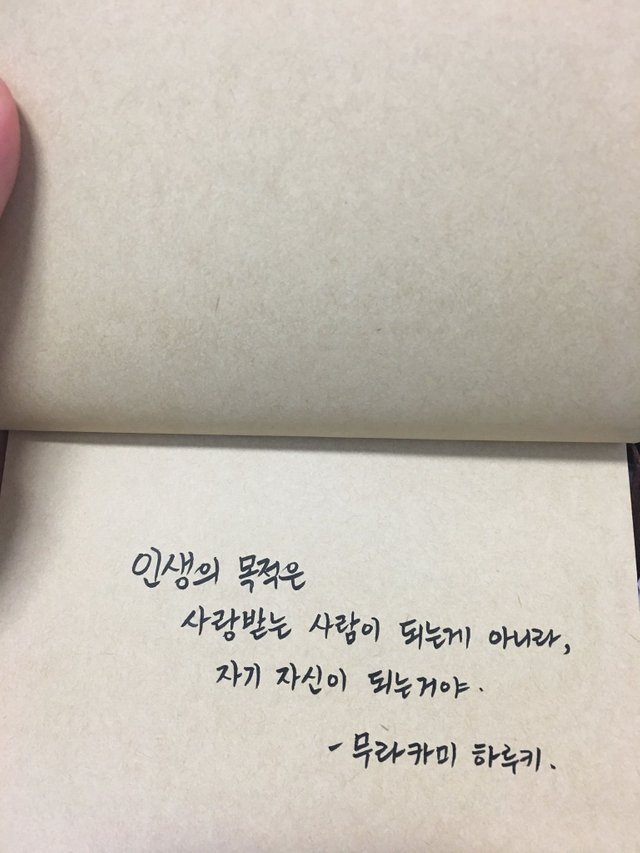 인생의 목적은
사랑받는 사람이 되는게 아니라,
자기 자신이 되는거야.
- 무라카미 하루키.